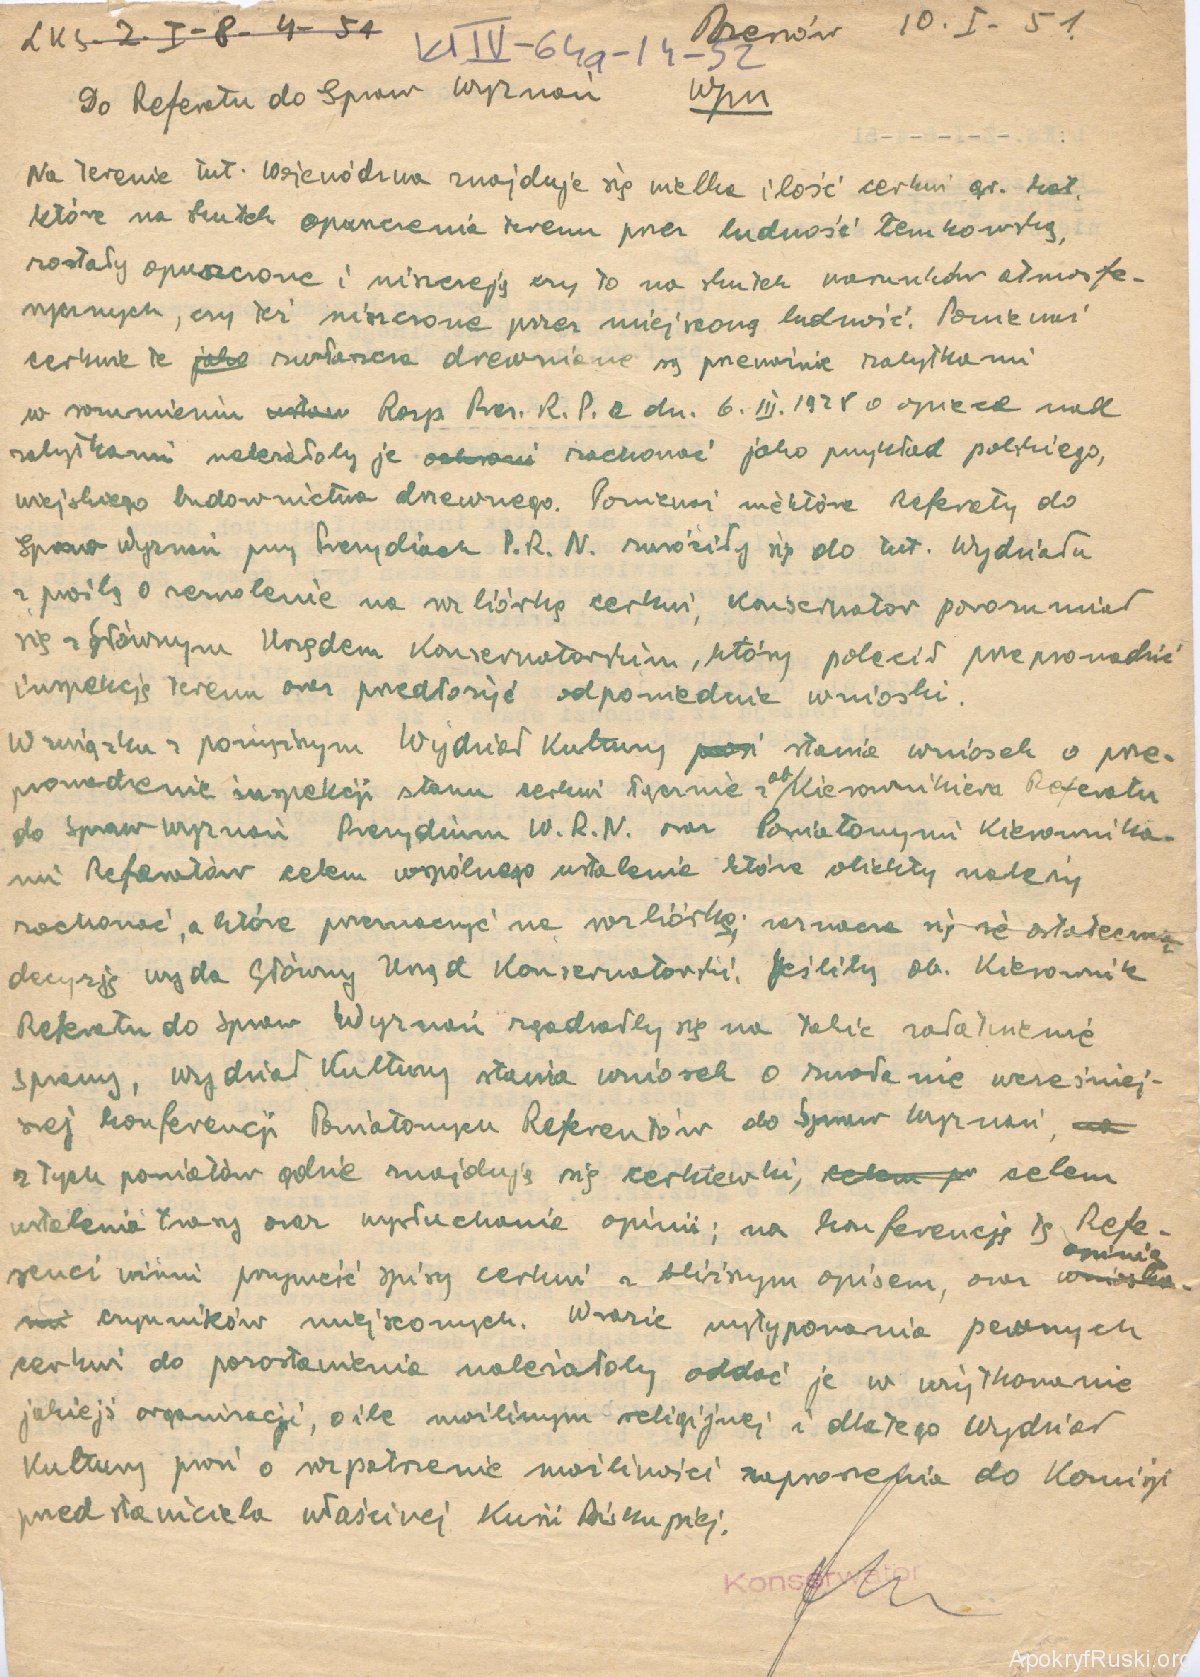 LKS-2-I-8-4-51 Rzeszów 10.I.51.
KlIV-64a-14-52
Do Referatu do Spraw Wyznań Wpn
Na terenie tut. Województwa znajduje się wielka ilość cerkwi gr. kat.
które na skutek opuszczenia terenu przez ludność łemkowską,
zostały opuszczone i niszczeją czy to na skutek warunków atmosfe-
rycznych, czy też niszczone przez miejscową ludność. Ponieważ
cerkwie te jako zwłaszcza drewniane są przeważnie zabytkami
w rozumieniu ustaw Rozp. Prez. R.P. z dn. 6.III.1928 o opiece nad
zabytkami należałoby je zachować jako przykład polskiego,
wiejskiego budownictwa drzewnego. Ponieważ niektóre Referaty do
Spraw Wyznań przy Prezydiach P.R.N. zwróciły się do tut. Wydziału
z prośbą o zezwolenie na rozbiórkę cerkwi, Konserwator porozumiał
się z Głównym Urzędem Konserwatorskim, który polecił przeprowadzić
inspekcję terenu oraz przedłożyć odpowiednie wnioski.
W związku z powyższym Wydział Kultury prosi stawia wniosek o prze-
prowadzenie inspekcji stanu cerkwi łącznie z ob/Kierownikiem Referatu
do Spraw Wyznań Prezydium W.R.N. oraz Powiatowymi Kierownika-
mi Referatów celem wspólnego ustalenia które obiekty należy
zachować, a które przeznaczyć na rozbiórkę; zaznacza się że ostateczną
decyzję wyda Główny Urząd Konserwatorski. Jeśliby ob. Kierownik
Referatu do Spraw Wyznań zgadzałby się na takie załatwienie
sprawy, Wydział Kultury stawia wniosek o zwołanie wcześniej-
szej konferencji Powiatowych Referentów do Spraw Wyznań, na
z tych powiatów gdzie znajdują się cerkiewki, celem p celem
ustalenia trasy oraz wysłuchania opinii; na konferencję tą Refe-
renci winni przywieść spisy cerkwi z bliższym opisem, oraz wnioska- opinią
mi czynników miejscowych. W razie wytypowania pewnych
cerkwi do pozostawienia należałoby oddać je w użytkowanie
jakiejś organizacji, o ile możliwym religijnej i dlatego Wydział
Kultury prosi o rozpatrzenie możliwości zaproszenia do Komisji
przedstawiciela właściwej Kurii Biskupiej.
Konserwator
ApokryfRuski.org